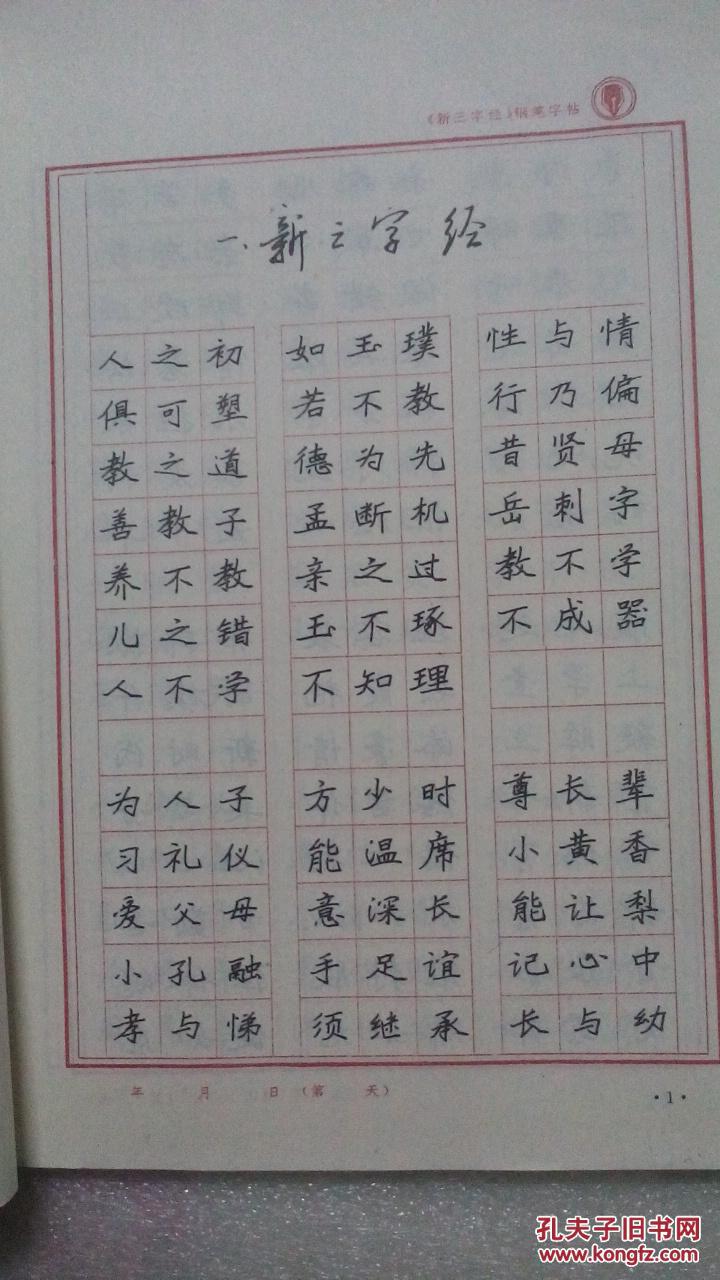 《新三字经》钢笔字帖
一、新三字经
人之初 如玉璞 性与情
俱可塑 若不教 行乃偏
教之道 德为先 昔贤母
善教子 孟断机 岳刺字
养不教 亲之过 教不学
儿之错 玉不琢 不成器
人不学 不知理
为人子 方少时 尊长辈
习礼仪 能温席 小黄香
爱父母 意深长 能让梨
小孔融 手足谊 记心中
孝与悌 须继承 长与幼
年 月 日（第 天）
·1·
孔夫子旧书网
www.kongfz.com